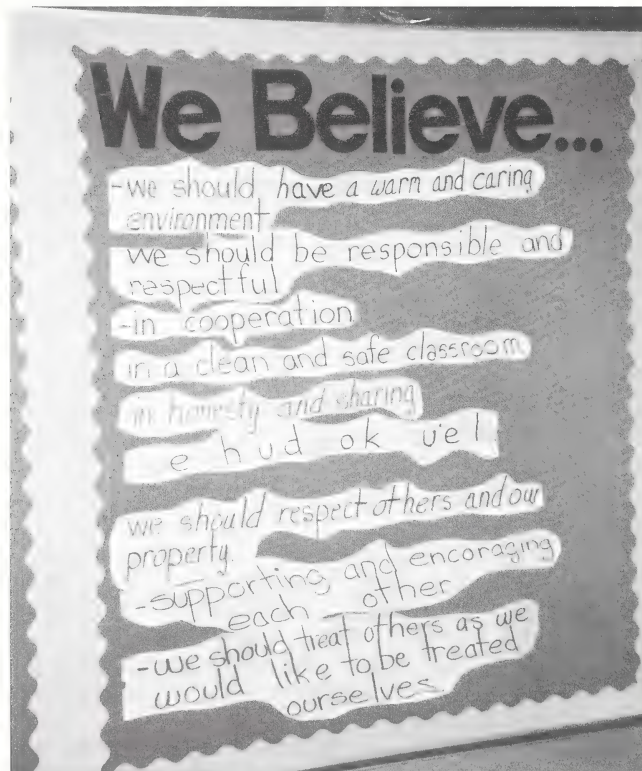 We Believe...
-we should have a warm and caring
environment
we should be responsible and
respectful
-in cooperation
in a clean and safe classroom
in honesty and sharing
we should respect others and our
property.
-supporting and encoraging
each other
-we should treat others as we
would like to be treated
ourselves.